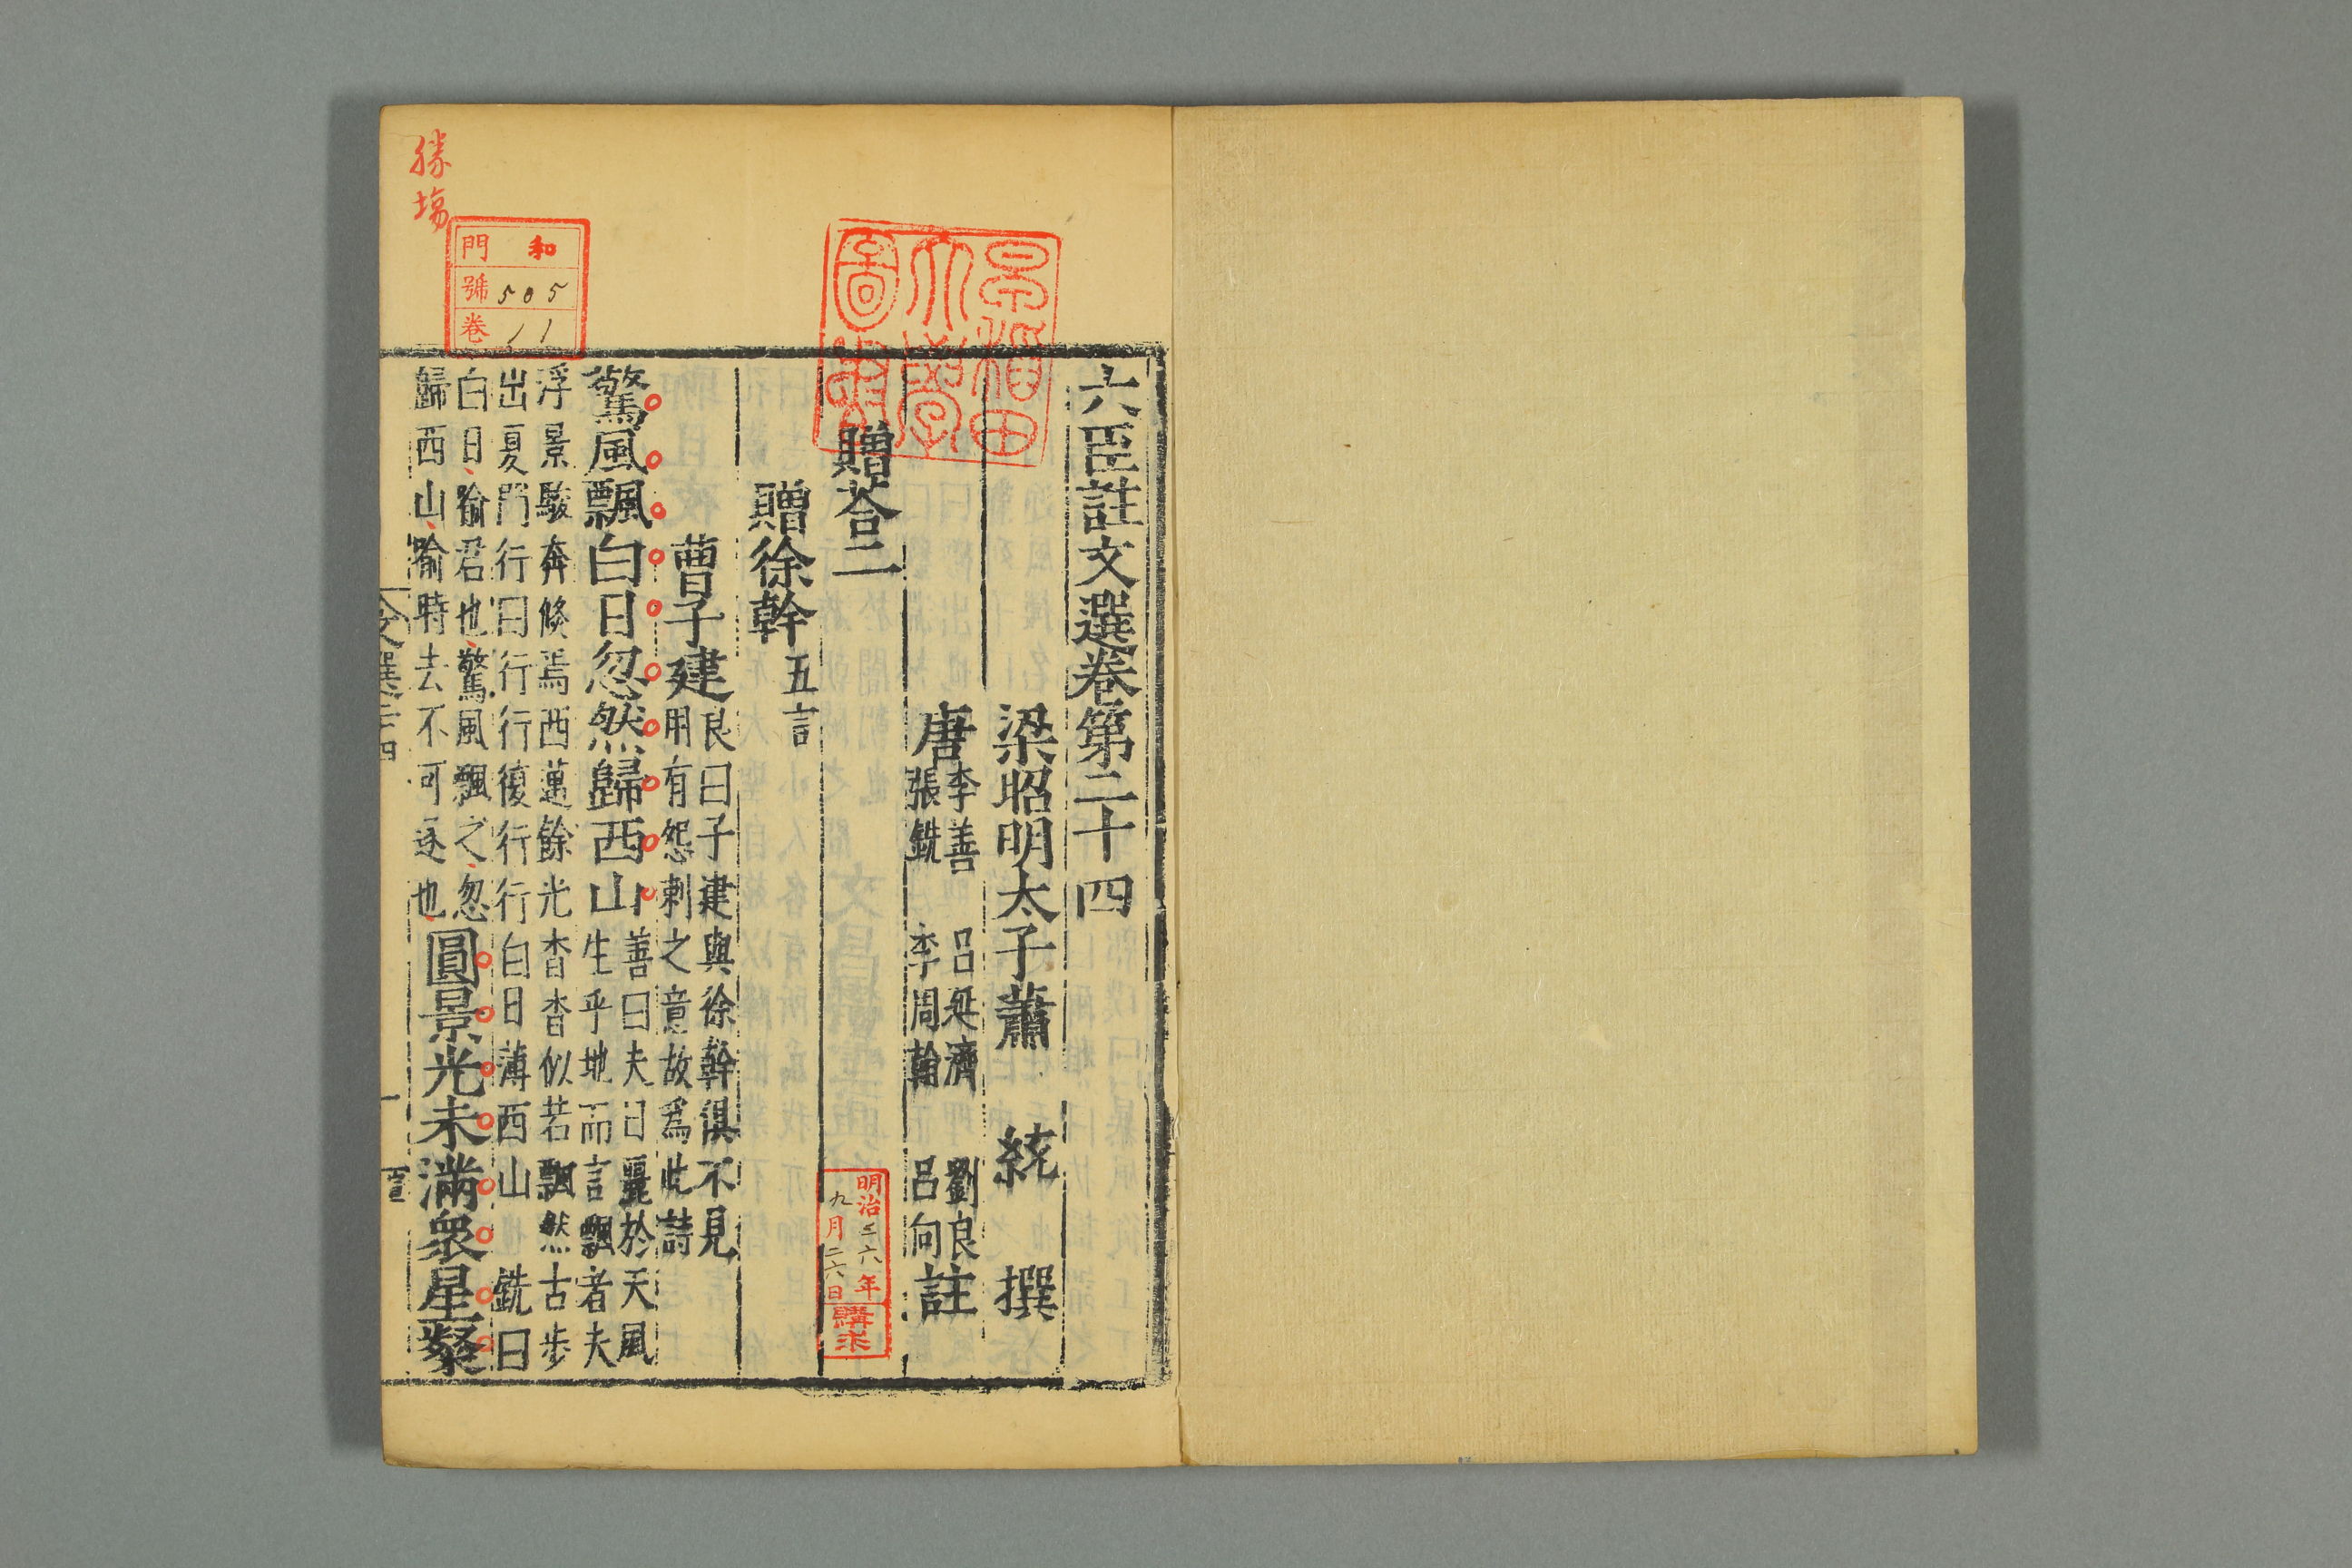 六臣註文選卷第二十四
梁昭明太子蕭 統 撰
唐
李善 呂延濟 劉良
張銑 李周翰 呂向
註
贈荅二
贈徐幹五言
曹子建
良曰子建與徐幹俱不見
用有怨刺之意故爲此詩
驚風飄白日忽然歸西山
善曰夫日麗於天風
生乎地而言飄者夫
浮景駿奔倐焉西邁餘光杳杳似若飄然古步
出夏門行曰行行復行行白日薄西山 銑曰
白日喻君也驚風飄之忽
歸西山喻時去不可逐也
圓景光未滿衆星粲
文選二十四
一
勝塲
和門
505號
11卷
早稲田
大學
圖書
明治三六年
九月二六日
購求